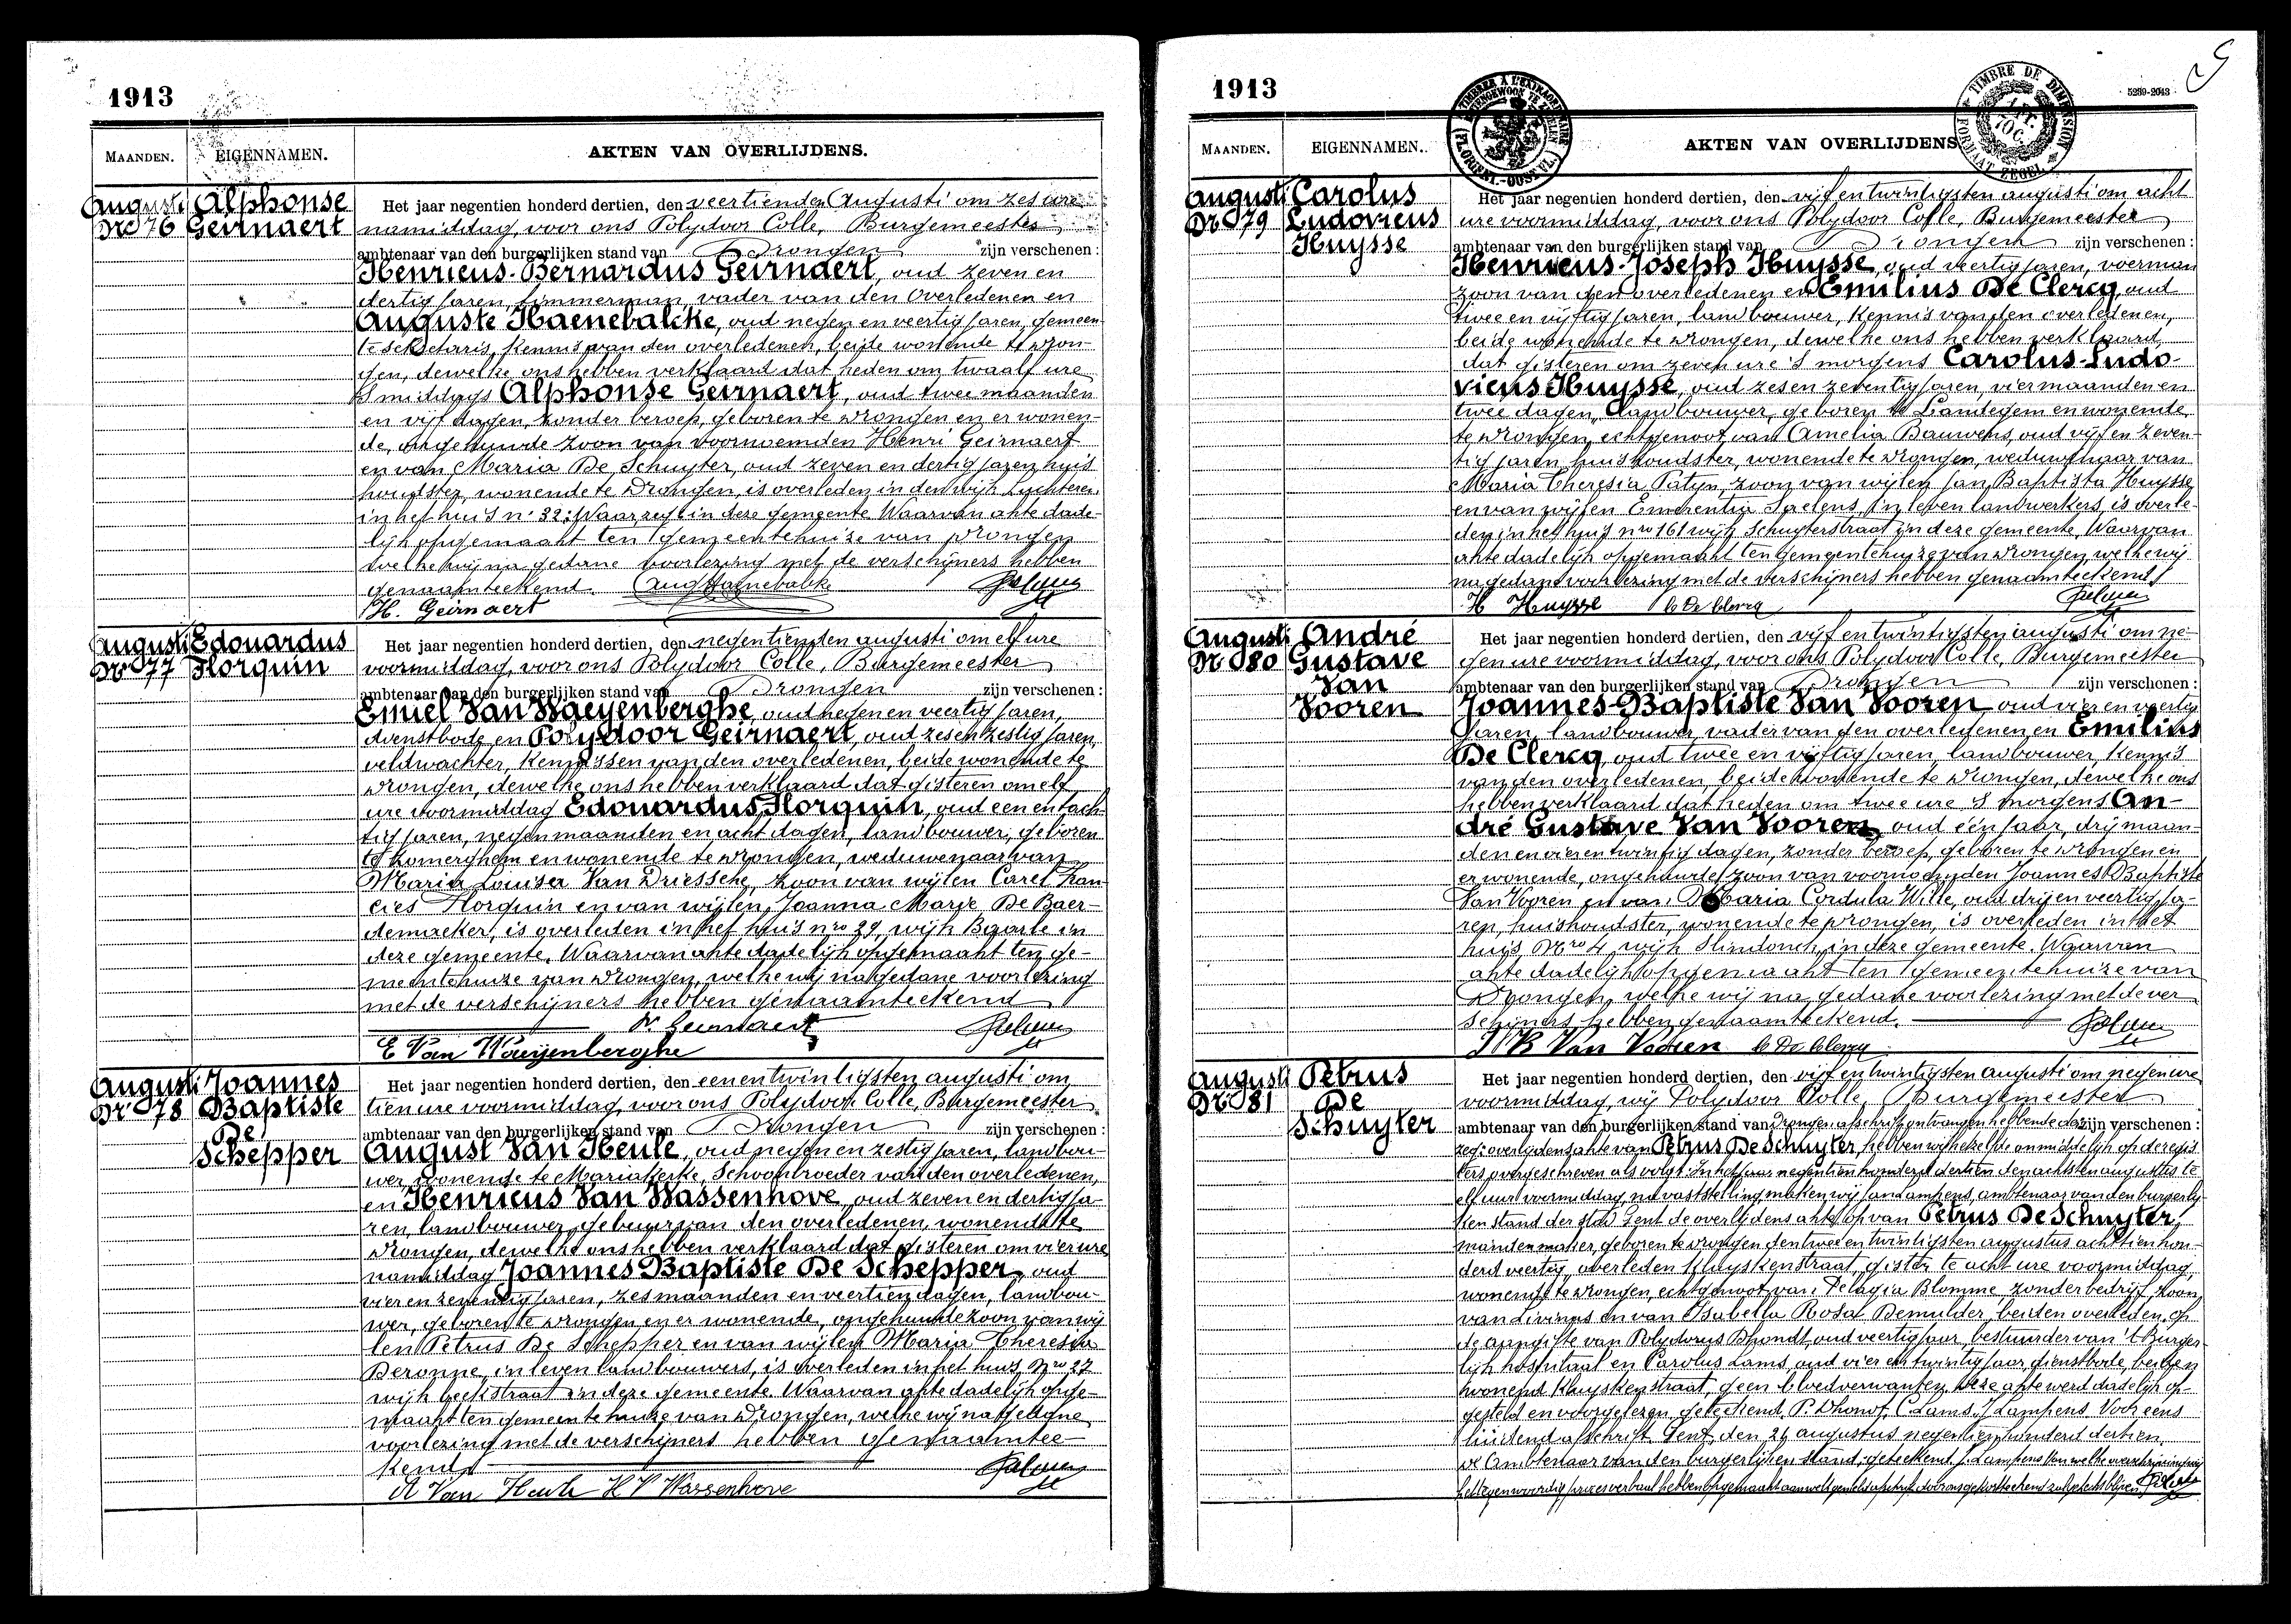 1913
MAANDEN.
EIGENNAMEN.
AKTEN VAN OVERLIJDENS.
Augusti
Nr 76
Alphonse
Geirnaert
Het jaar negentien honderd dertien, den veertienden Augusti om zes ure
namiddag, voor ons Polydoor Colle, Burgemeester
ambtenaar van den burgerlijken stand van Drongen zijn verschenen :
Henricus-Bernardus Geirnaert, oud zeven en
dertig jaren, timmerman, vader van den overledenen en
Auguste Haenebalcke, oud negen en veertig jaren, gemeen-
tesekretaris, kennis van den overledenen, beide wonende te Dron-
gen, dewelke ons hebben verklaard dat heden om twaalf ure
's middags Alphonse Geirnaert, oud twee maanden
en vijf dagen, zonder beroep, geboren te Drongen en er wonen-
de, ongehuwde zoon van voornoemden Henri Geirnaert
en van Maria De Schuyter, oud zeven en dertig jaren, huis
houdster, wonende te Drongen, is overleden in den wijk Luchteren
in het huis nr 32: Waarzegt in deze gemeente. Waarvan akte dade-
lijk opgemaakt ten gemeentehuize van Drongen
welke wij na gedane voorlezing met de verschijners hebben
genaamteekend. Aug Haenebalcke
H. Geirnaert
Augusti
Nr 77
Edouardus
Florquin
Het jaar negentien honderd dertien, den negentienden augusti om elf ure
voormiddag, voor ons Polydoor Colle, Burgemeester
ambtenaar van den burgerlijken stand van Drongen zijn verschenen :
Emiel Van Waeyenberghe, oud negen en veertig jaren,
dienstbode en Polydoor Geirnaert, oud zesenzestig jaren,
veldwachter, kennissen van den overledenen, beide wonende te
Drongen, dewelke ons hebben verklaard dat gisteren om elf
ure voormiddag Edouardus Florquin, oud een en tach-
tig jaren, negen maanden en acht dagen, landbouwer, geboren
te Somerghem en wonende te Drongen, weduwenaar van
Maria Louisa Van Driessche, zoon van wijlen Carel Fran-
cies Florquin en van wijlen Joanna Marie De Baer-
demaeker, is overleden in het huis nro 29, wijk Baarle in
deze gemeente. Waarvan akte dadelijk opgemaakt ten ge-
meentehuize van Drongen, welke wij na gedane voorlezing
met de verschijners hebben genaamteekend
P. Geirnaert
E Van Waeyenberghe
Augusti
Nr 78
Joannes
Baptiste
De
Schepper
Het jaar negentien honderd dertien, den eenentwintigsten augusti om
tien ure voormiddag, voor ons Polydoor Colle, Burgemeester
ambtenaar van den burgerlijken stand van Drongen zijn verschenen :
August Van Heule, oud negen en zestig jaren, landbou-
wer, wonende te Mariakerke, schoonbroeder van den overledenen,
en Henricus Van Wassenhove, oud zeven en dertig ja-
ren, landbouwer, gebuur van den overledenen, wonende te
Drongen, dewelke ons hebben verklaard dat gisteren om vier ure
namiddag Joannes Baptiste De Schepper, oud
vier en zeventig jaren, zes maanden en veertien dagen, landbou-
wer, geboren te Drongen en er wonende, ongehuwde zoon van wij
len Petrus De Schepper en van wijlen Maria Theresia
Deronne, in leven landbouwers, is overleden in het huis Nro 27
wijk Beekstraat in deze gemeente. Waarvan akte dadelijk opge-
maakt ten gemeentehuize van Drongen, welke wij na gedane
voorlezing met de verschijners hebben genaamtee-
kend
A Van Heule H V Wassenhove
1913
TIMBRE DE DIMENSION
FORMAAT ZEGEL
1 FR.
70 C.
5289-2043
MAANDEN.
EIGENNAMEN.
AKTEN VAN OVERLIJDENS
Augusti
Nr 79
Carolus
Ludovicus
Huysse
Het jaar negentien honderd dertien, den vijf en twintigsten augusti om acht
ure voormiddag, voor ons Polydoor Colle, Burgemeester
ambtenaar van den burgerlijken stand van Drongen zijn verschenen :
Henricus-Joseph Huysse, oud veertig jaren, voerman
zoon van den overledenen en Emilius De Clercq, oud
twee en vijftig jaren, landbouwer, kennis van den overledenen,
beide wonende te Drongen, dewelke ons hebben verklaard
dat gisteren om zeven ure 's morgens Carolus-Ludo-
vicus Huysse, oud zes en zeventig jaren, vier maanden en
twee dagen, landbouwer, geboren te Landegem en wonende
te Drongen, echtgenoot van Amelia Bauwens, oud vijf en zeven-
tig jaren, huishoudster, wonende te Drongen, weduwenaar van
Maria Theresia Patyn, zoon van wijlen Jan Baptista Huysse
en van wijlen Emerentia Saelens, in leven landwerkers, is overle-
den in het huis nro 161 wijk Schuyterstraat in deze gemeente. Waarvan
akte dadelijk opgemaakt ten gemeentehuize van Drongen, welke wij
na gedane voorlezing met de verschijners hebben genaamteekend
H Huysse E De Clercq
Augusti
Nr 80
André
Gustave
Van
Vooren
Het jaar negentien honderd dertien, den vijf en twintigsten augusti om ne-
gen ure voormiddag, voor ons Polydoor Colle, Burgemeester
ambtenaar van den burgerlijken stand van Drongen zijn verschenen :
Joannes-Baptiste Van Vooren, oud vier en veertig
jaren, landbouwer, vader van den overledenen en Emilius
De Clercq, oud twee en vijftig jaren, landbouwer, kennis
van den overledenen, beide wonende te Drongen, dewelke ons
hebben verklaard dat heden om twee ure 's morgens An-
dré Gustave Van Vooren, oud één jaar, drij maan-
den en vier en twintig dagen, zonder beroep, geboren te Drongen en
er wonende, ongehuwde zoon van voornoemden Joannes Baptiste
Van Vooren en van Maria Cordula Wille, oud drij en veertig ja-
ren, huishoudster, wonende te Drongen, is overleden in het
huis Nro 4, wijk Slindonck, in deze gemeente. Waarvan
akte dadelijk opgemaakt ten gemeentehuize van
Drongen, welke wij na gedane voorlezing met de ver
schijners hebben genaamteekend.
J B Van Vooren E De Clercq
Augusti
Nr 81
Petrus
De
Schuyter
Het jaar negentien honderd dertien, den vijf en twintigsten augusti om negen ure
voormiddag, wij Polydoor Colle, Burgemeester
ambtenaar van den burgerlijken stand van Drongen, afschrift ontvangen hebbende der zijn verschenen :
overlijdensakte van Petrus De Schuyter, hebben wij hetzelve onmiddelijk op de regis
ters overgeschreven als volgt: In het jaar negentien honderd dertien den achtsten augustus te
elf uur voormiddag, na vaststelling maken wij Jan Lampens, ambtenaar van den burgerlij-
ken stand der stad Gent de overlijdens akte op van Petrus De Schuyter,
mandenmaker, geboren te Drongen den twee en twintigsten augustus achttien hon-
derd veertig, overleden Kluyskenstraat, gister te acht ure voormiddag,
wonende te Drongen, echtgenoot van Pelagia Blomme, zonder bedrijf, zoon
van Livinus en van Isabella Rosa Demulder, beiden overleden, op
de aangifte van Polydorus Dhondt, oud veertig jaar, bestuurder van 't Burger-
lijk hospitaal en Carolus Lams, oud vier en twintig jaar, dienstbode, beiden
wonend Kluyskenstraat, geen bloedverwanten. Deze akte werd dadelijk op-
gesteld en voorgelezen, geteekend, P. Dhondt, C Lams, J Lampens. Voor eens
luidend afschrift Gent, den 21 augustus negentien honderd dertien,
De Ambtenaar van den burgerlijken stand, geteekend, J. Lampens Van welke overschrijving wij
het tegenwoordig proces verbaal hebben opgemaakt